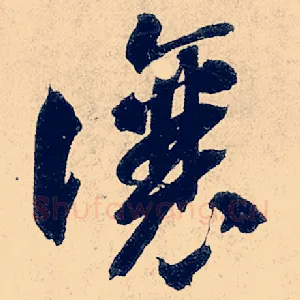 讓
Shufawang.CN